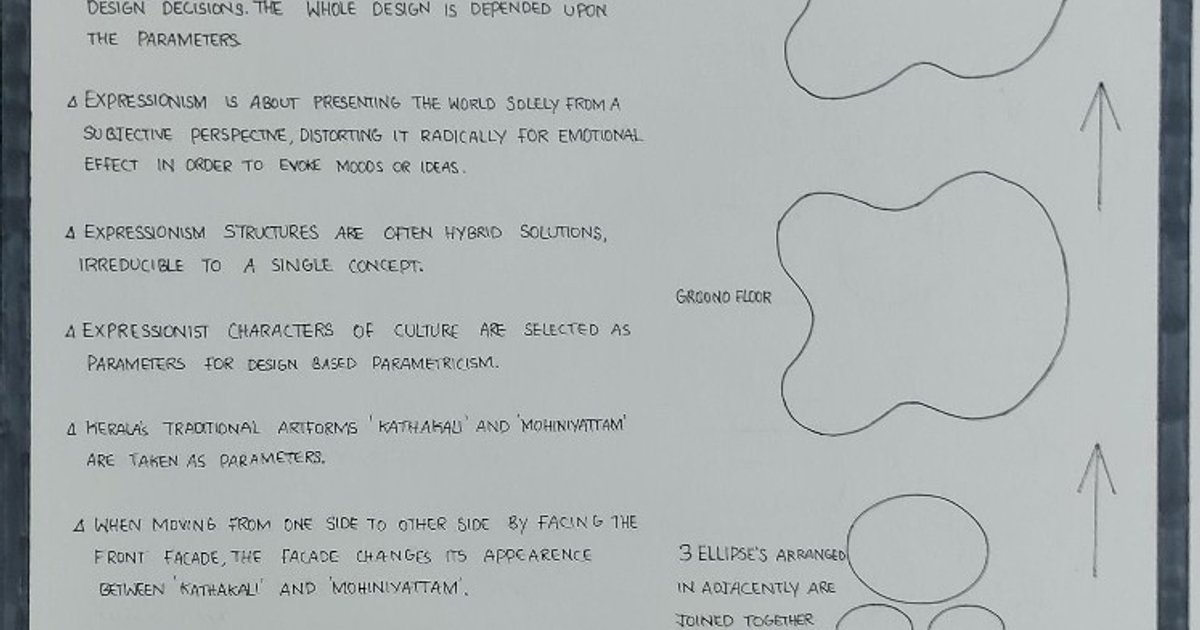 DESIGN DECISIONS. THE WHOLE DESIGN IS DEPENDED UPON
THE PARAMETERS.
Δ EXPRESSIONISM IS ABOUT PRESENTING THE WORLD SOLELY FROM A
SUBJECTIVE PERSPECTIVE, DISTORTING IT RADICALLY FOR EMOTIONAL
EFFECT IN ORDER TO EVOKE MOODS OR IDEAS.
Δ EXPRESSIONISM STRUCTURES ARE OFTEN HYBRID SOLUTIONS,
IRREDUCIBLE TO A SINGLE CONCEPT.
Δ EXPRESSIONIST CHARACTERS OF CULTURE ARE SELECTED AS
PARAMETERS FOR DESIGN BASED PARAMETRICISM.
Δ KERALA'S TRADITIONAL ARTFORMS 'KATHAKALI' AND 'MOHINIYATTAM'
ARE TAKEN AS PARAMETERS.
Δ WHEN MOVING FROM ONE SIDE TO OTHER SIDE BY FACING THE
FRONT FACADE, THE FACADE CHANGES ITS APPEARENCE
BETWEEN 'KATHAKALI' AND 'MOHINIYATTAM'.
GROUND FLOOR
3 ELLIPSE'S ARRANGED
IN ADJACENTLY ARE
JOINED TOGETHER